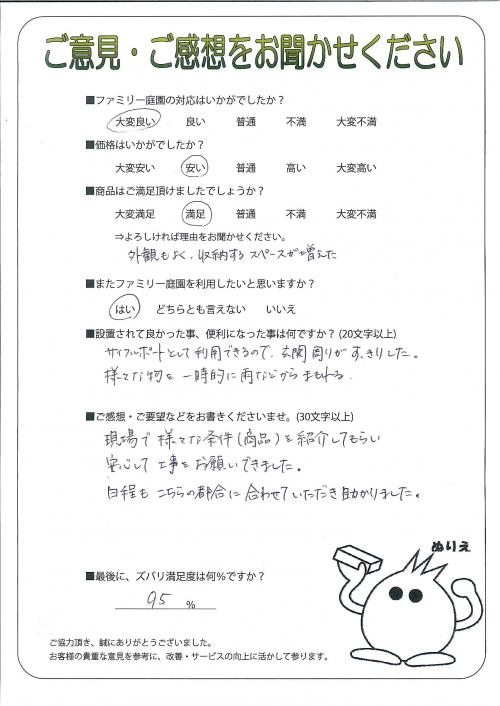 ご意見・ご感想をお聞かせください
■ファミリー庭園の対応はいかがでしたか？
大変良い 良い 普通 不満 大変不満
■価格はいかがでしたか？
大変安い 安い 普通 高い 大変高い
■商品はご満足頂けましたでしょうか？
大変満足 満足 普通 不満 大変不満
⇒よろしければ理由をお聞かせください。
外観もよく、収納するスペースが増えた
■またファミリー庭園を利用したいと思いますか？
はい どちらとも言えない いいえ
■設置されて良かった事、便利になった事は何ですか？(20文字以上)
サイクルポートとして利用できるので、玄関周りがすっきりした。
様々な物を一時的に雨などからまもれる。
■ご感想・ご要望などをお書きくださいませ。(30文字以上)
現場で様々な条件(商品)を紹介してもらい
安心して工事をお願いできました。
日程もこちらの都合に合わせていただき助かりました。
ぬりえ
■最後に、ズバリ満足度は何%ですか？
95 %
ご協力頂き、誠にありがとうございました。
お客様の貴重な意見を参考に、改善・サービスの向上に活かして参ります。